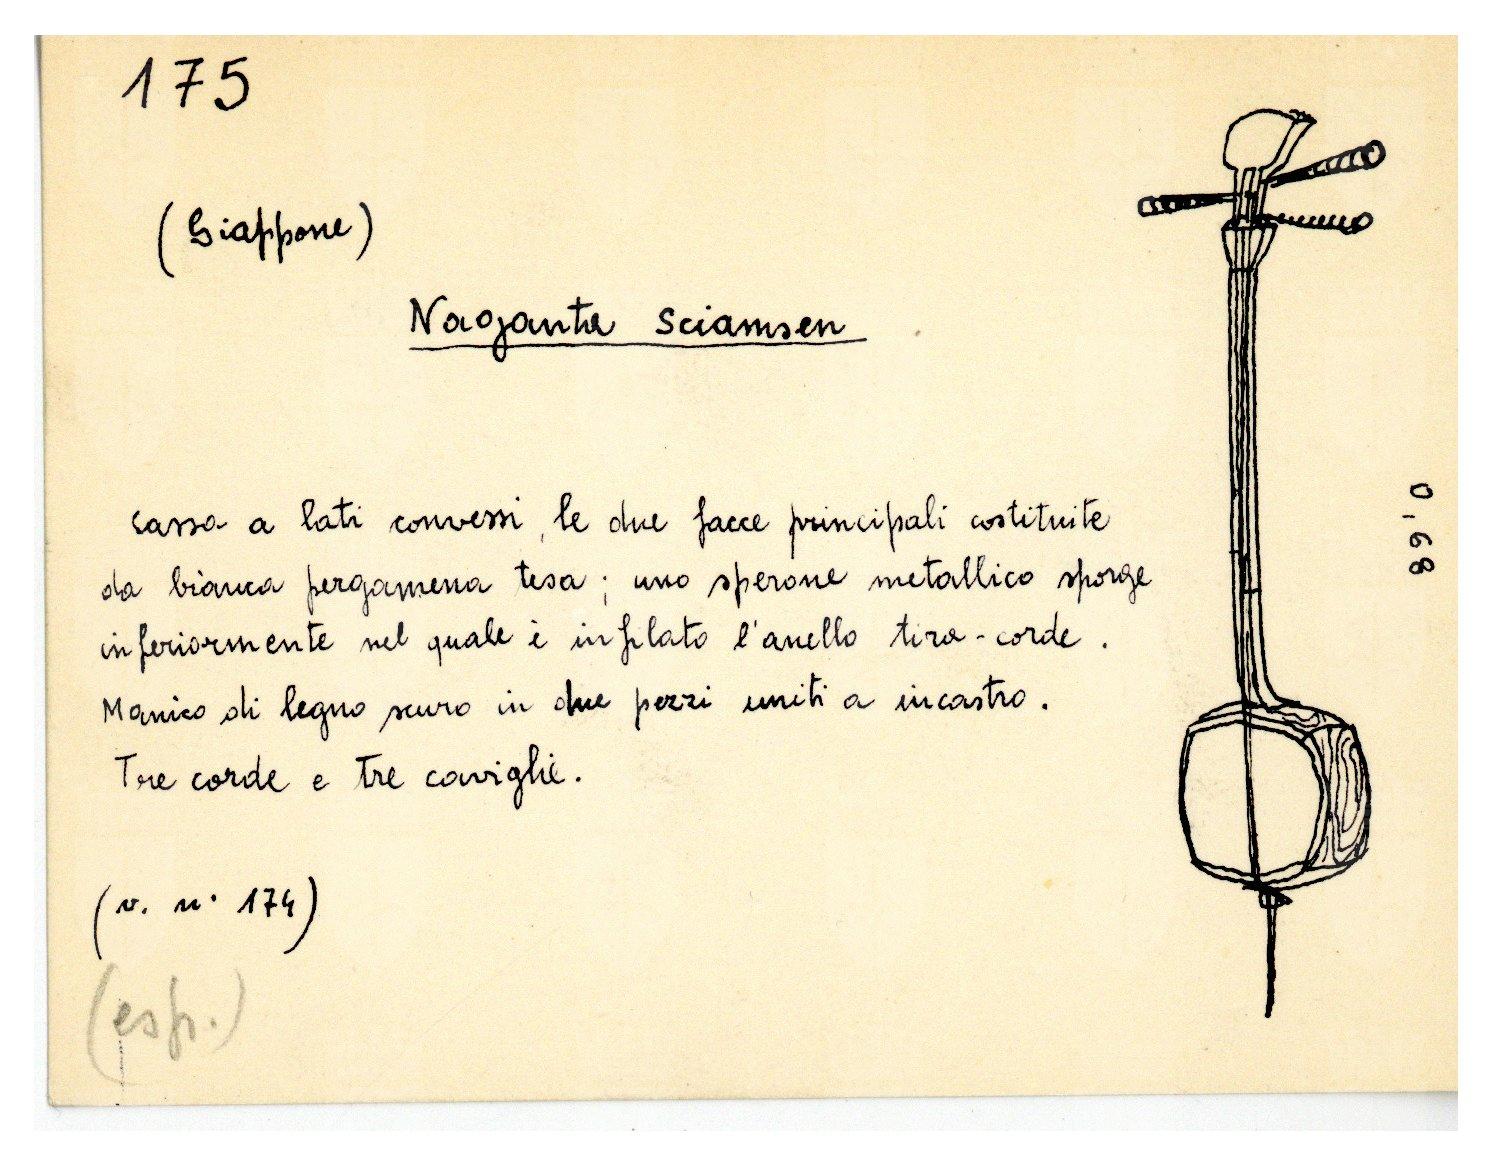 175
(Giappone)
Nagauta Sciamsen
Cassa a lati convessi, le due facce principali costituite
da bianca pergamena tesa; uno sperone metallico sporge
inferiormente nel quale è infilato l'anello tira-corde.
Manico di legno scuro in due pezzi uniti a incastro.
Tre corde e tre caviglie.
(v. n. 174)
(esp.)
0,68